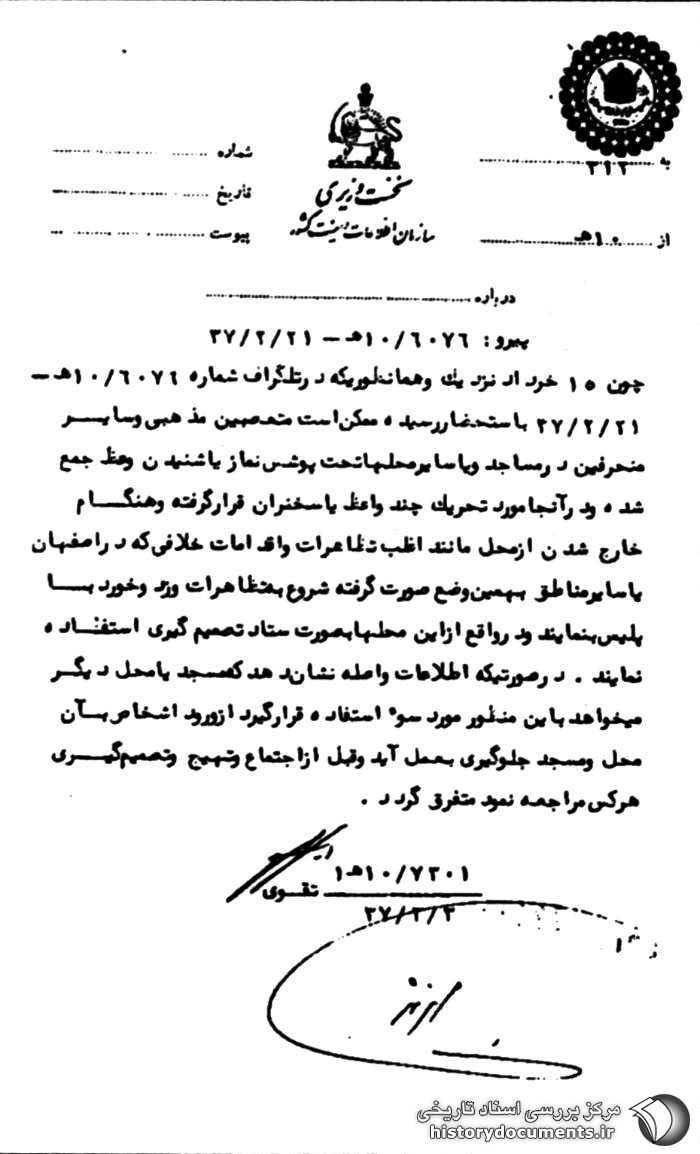 شماره
به ۳۱۲
تاریخ
نخست وزیری
پیوست
سازمان اطلاعات و امنیت کشور
از ۱۰هـ
درباره
پیرو : ۱۰/۶۰۷۶هـ – ۳۷/۲/۲۱
چون ۱۵ خرداد نزدیك وهمانطوریکه درتلگراف شماره ۱۰/۶۰۷۶هـ –
۳۷/۲/۲۱ باستحضاررسیده ممکن است متعصبین مذهبی وسایر
منحرفین درمساجد ویاسایرمحلهاتحت پوشش نماز یاشنیدن وعظ جمع
شده ودرآنجامورد تحریك چند واعظ یاسخنران قرارگرفته وهنگام
خارج شدن ازمحل مانند اغلب تظاهرات واقدامات خلافی که دراصفهان
یاسایرمناطق بهمین وضع صورت گرفته شروع بتظاهرات وزد وخورد با
پلیس بنمایند ودرواقع ازاین محلهابصورت ستاد تصمیم گیری استفاده
نمایند . درصورتیکه اطلاعات واصله نشان دهد که مسجد یامحل دیگر
میخواهد باین منظور مورد سوء استفاده قرارگیرد ازورود اشخاص بآن
محل ومسجد جلوگیری بعمل آید وقبل ازاجتماع وتهیج وتصمیم گیری
هرکس مراجعه نمود متفرق گردد .
۱۰/۷۳۰۱هـ۱
تقوی
۳۷/۳/۳
مرکز بررسی اسناد تاریخی
historydocuments.ir